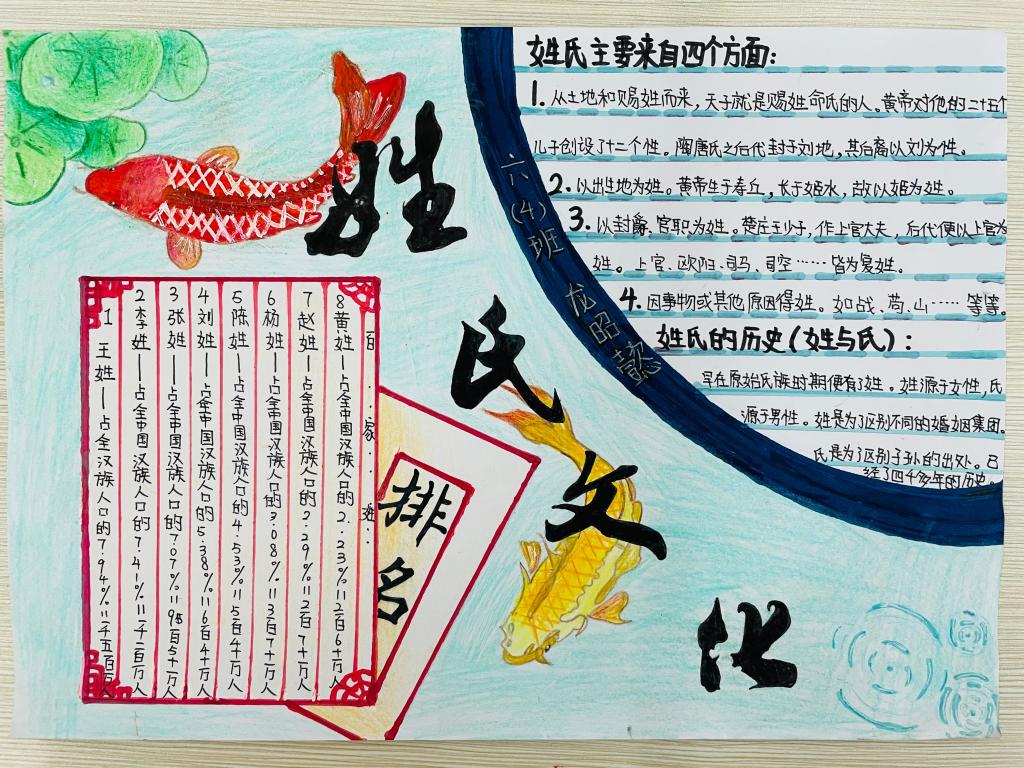 姓氏文化
六(4)班 龙昭懿
姓氏主要来自四个方面:
1. 从土地和赐姓而来，天子就是赐姓命氏的人。黄帝对他的二十五个
儿子创设了十二个性。陶唐氏之后代封于刘地，其后裔以刘为性。
2. 以出生地为姓。黄帝生于寿丘，长于姬水，故以姬为姓。
3. 以封爵、官职为姓。楚庄王少子，作上官大夫，后代便以上官为
姓。上官、欧阳、司马、司空……皆为复姓。
4. 因事物或其他原因得姓。如战、芶、山……等等。
姓氏的历史(姓与氏):
早在原始氏族时期便有了姓。姓源于女性，氏
源于男性。姓是为了区别不同的婚姻集团。
氏是为了区别子孙的出处。已
经了四千多年的历史。
百..家..姓:
排名
1 王姓—占全汉族人口的7.94%=二千五百万人
2 李姓—占全中国汉族人口的7.41%=二千二百万人
3 张姓—占全中国汉族人口的7.07%=9千5百5十一万人
4 刘姓—占全中国汉族人口的5.38%=6百4十万人
5 陈姓—占全中国汉族人口的4.53%=5百4十万人
6 杨姓—占全中国汉族人口的3.08%=3百7十万人
7 赵姓—占全中国汉族人口的2.29%=2百7十万人
8 黄姓—占全中国汉族人口的2.23%=2百6十万人